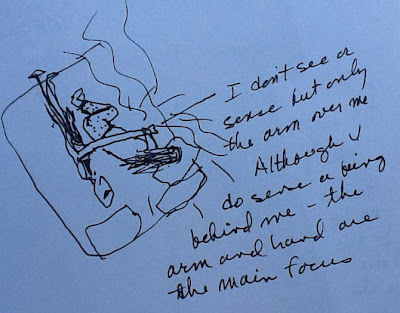 I don't see or
sense but only
the arm over me
Although I
do sense a being
behind me - the
arm and hand are
the main focus